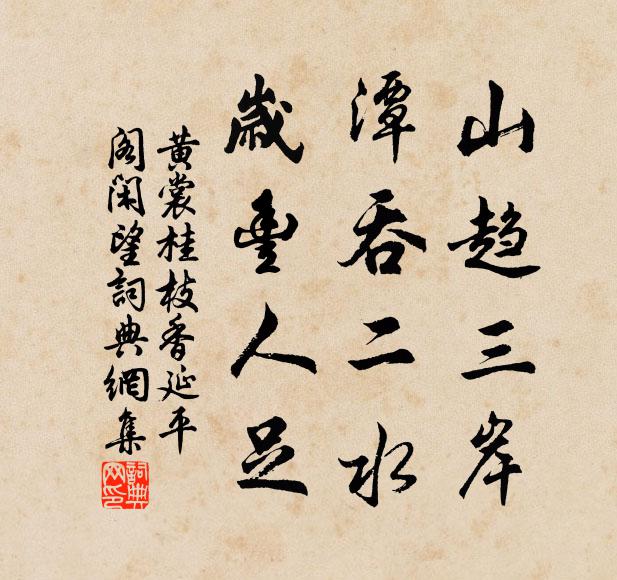 山趋三岸
潭吞二水
歲豐人足
黃裳桂枝香延平
阁闲望詞典網集
詞典网印